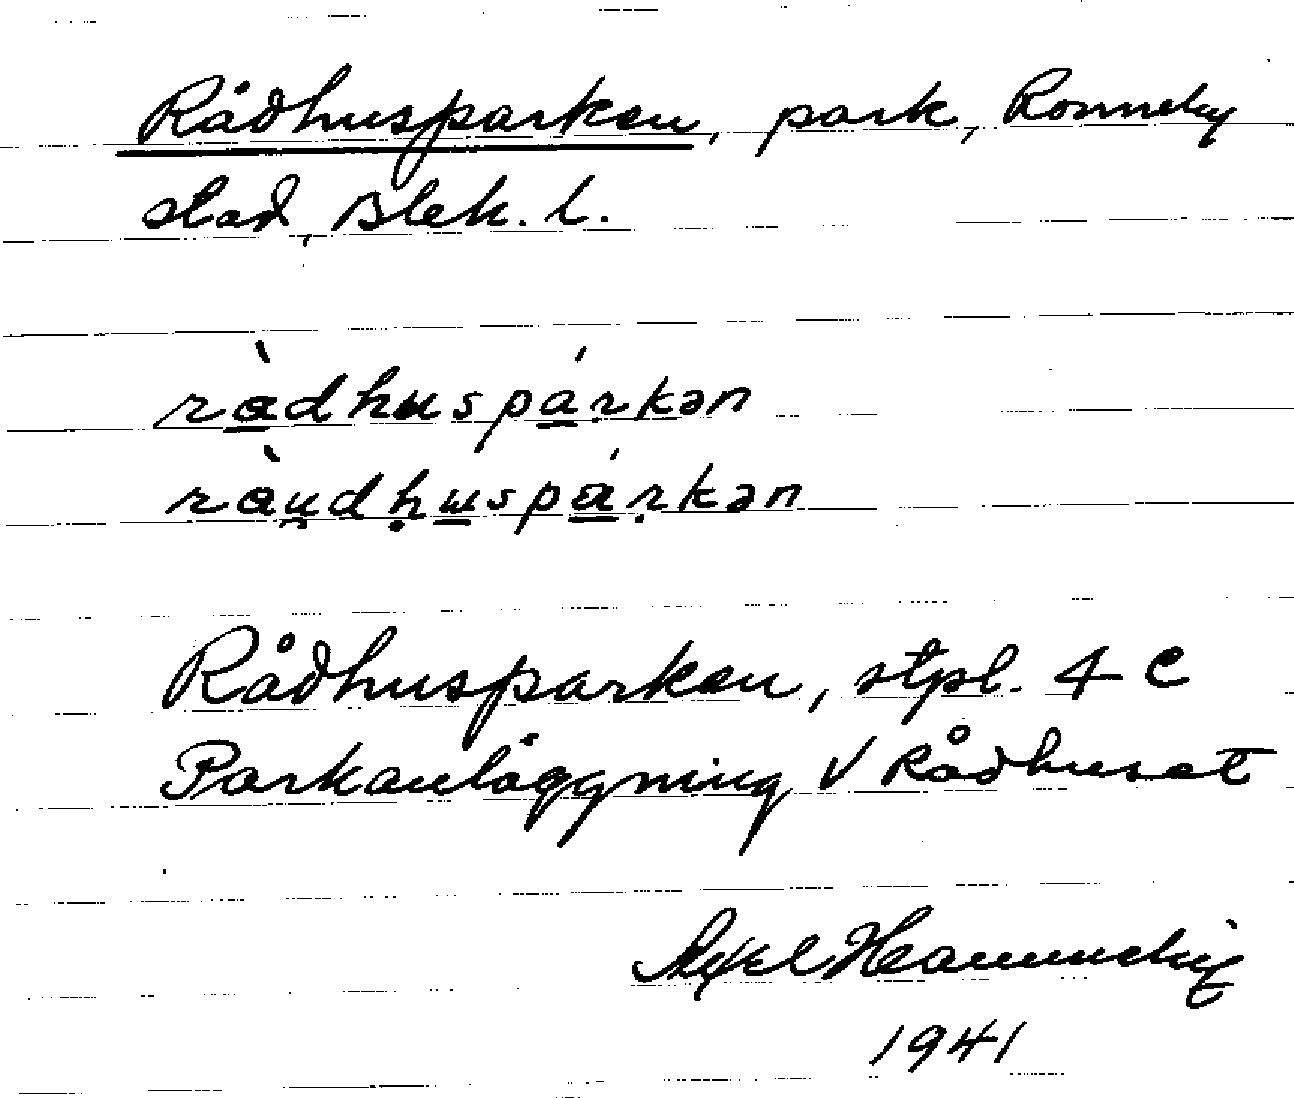 Rådhusparken, park, Ronneby
stad, Blek. l.
rà̱dhʉspá̱ṛkən
ràu̯dḥʉ̱spá̱ṛkən
Rådhusparken, stpl. 4 C
Parkanläggning V Rådhuset
Axel
1941